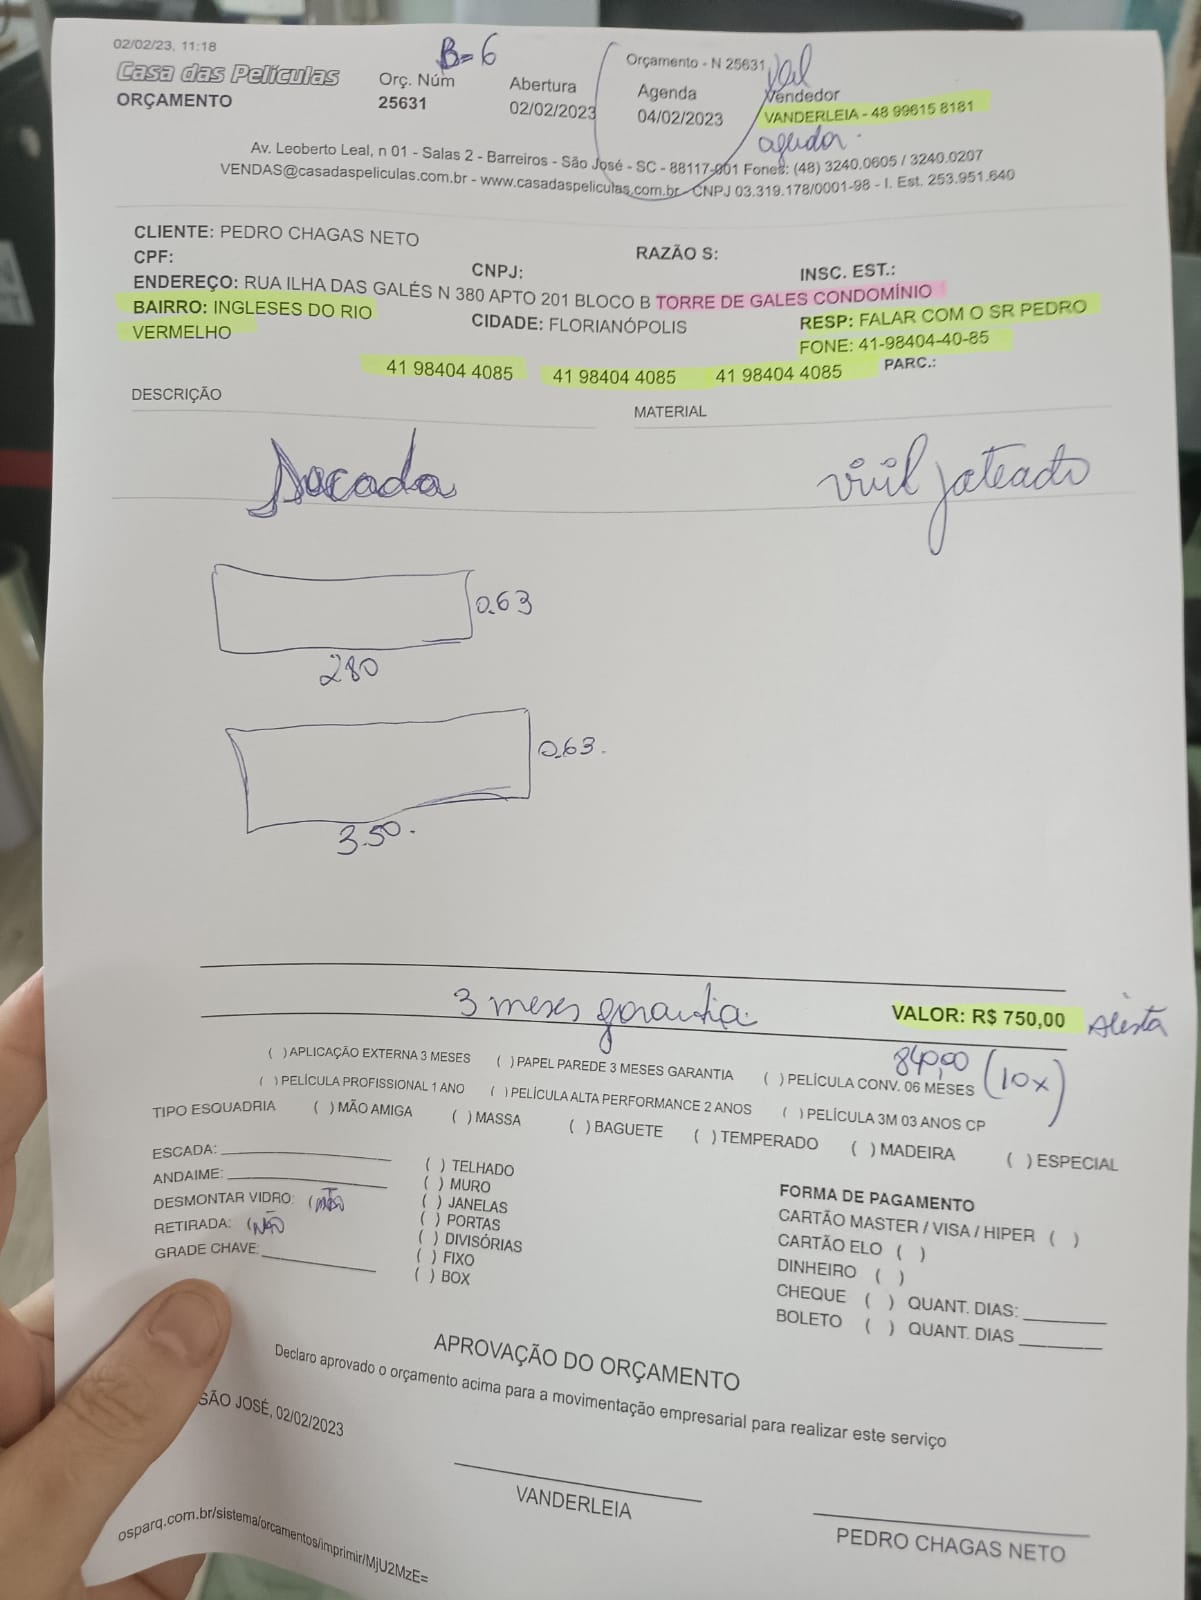 02/02/23, 11:18
B=6
Orçamento - N 25631
Casa das Películas
ORÇAMENTO
Orç. Núm
25631
Abertura
02/02/2023
Agenda
04/02/2023
Vendedor
VANDERLEIA - 48 99615 8181
Av. Leoberto Leal, n 01 - Salas 2 - Barreiros - São José - SC - 88117-001 Fones: (48) 3240.0605 / 3240.0207
VENDAS@casadaspeliculas.com.br - www.casadaspeliculas.com.br - CNPJ 03.319.178/0001-98 - I. Est. 253.951.640
CLIENTE: PEDRO CHAGAS NETO
RAZÃO S:
CPF:
CNPJ:
INSC. EST.:
ENDEREÇO: RUA ILHA DAS GALÉS N 380 APTO 201 BLOCO B TORRE DE GALES CONDOMÍNIO
BAIRRO: INGLESES DO RIO
VERMELHO
CIDADE: FLORIANÓPOLIS
RESP: FALAR COM O SR PEDRO
FONE: 41-98404-40-85
41 98404 4085 41 98404 4085 41 98404 4085
PARC.:
DESCRIÇÃO
MATERIAL
Sacada
jateado
0.63
280
0.63.
3.50.
3 meses garantia.
VALOR: R$ 750,00
840,00 (10x)
( ) APLICAÇÃO EXTERNA 3 MESES ( ) PAPEL PAREDE 3 MESES GARANTIA ( ) PELÍCULA CONV. 06 MESES
( ) PELÍCULA PROFISSIONAL 1 ANO ( ) PELÍCULA ALTA PERFORMANCE 2 ANOS ( ) PELÍCULA 3M 03 ANOS CP
TIPO ESQUADRIA ( ) MÃO AMIGA ( ) MASSA ( ) BAGUETE ( ) TEMPERADO ( ) MADEIRA ( ) ESPECIAL
ESCADA:
ANDAIME:
DESMONTAR VIDRO: (não
RETIRADA: (NÃO
GRADE CHAVE:
( ) TELHADO
( ) MURO
( ) JANELAS
( ) PORTAS
( ) DIVISÓRIAS
( ) FIXO
( ) BOX
FORMA DE PAGAMENTO
CARTÃO MASTER / VISA / HIPER ( )
CARTÃO ELO ( )
DINHEIRO ( )
CHEQUE ( ) QUANT. DIAS:
BOLETO ( ) QUANT. DIAS
APROVAÇÃO DO ORÇAMENTO
Declaro aprovado o orçamento acima para a movimentação empresarial para realizar este serviço
SÃO JOSÉ, 02/02/2023
VANDERLEIA
PEDRO CHAGAS NETO
osparq.com.br/sistema/orcamentos/imprimir/MjU2MzE=